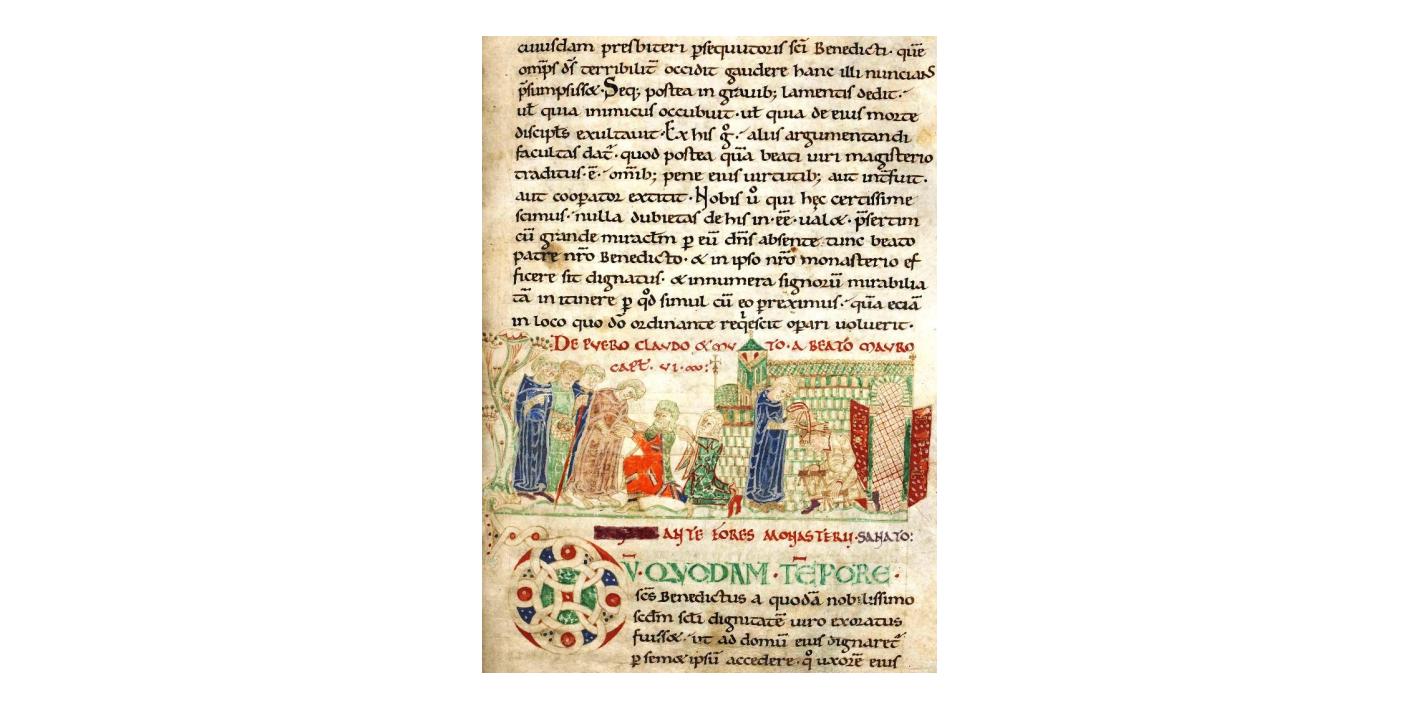 cuiusdam presbiteri ꝑsequutoris sc̄i Benedicti· quē
omp̄s ds̄ terribilit̄ occidit gaudere hanc illi nuncians
p̄sumpsisset· Seq; postea in grauib; lamentis dedit·
ut̄ quia inimicus occubuit· ut̄ quia de eius morte
discipl̄s exultauit· Ex his gͦ· alius argumentandi
facultas dat̄· quod postea quā beati uiri magisterio
traditus· ē· om̄ib; pene eius uirtutib; aut int̄fuit·
aut cooꝑator extitit· Nobis uͦ qui hęc certissime
scimus· nulla dubietas de his in· ēē· ualet· p̄sertim
cū grande miraclm̄ ꝑ eū dn̄s absente tunc beato
patre nr̄o Benedicto· & in ipso nr̄o monasterio ef
ficere sit dignatus· & innumera signorū mirabilia
tā in itinere ꝑ qͦd simul cū eo ꝑreximus· quā eciā
in loco quo dō ordinante reqͥescit oꝑari uoluerit·
DE PVERO CLAVDO & MVTO· A BEATO MAVRO
CAPT̄· VI·
ANTE FORES MONASTERII· SANATO:
V̄· QVODAM· TĒPORE·
sc̄s Benedictus a quodā nobilissimo
scd̄m scl̄i dignitatē uiro exoratus
fuisset· ut ad domū eius dignaret̄
ꝑ semet ipsū accedere· qͦ uxorē eius